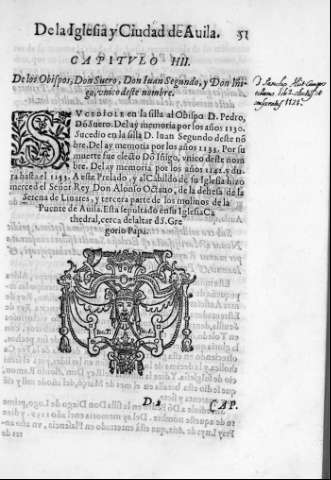 De la Iglesia y Ciudad de Auila. 51
CAPITVLO IIII.
De los Obispos, Don Suero, Don Iuan Segundo, y Don Iñi-
go, vnico deste nombre.
SVcediole en la silla al Obispo D. Pedro,
Dõ Suero. Del ay memoria por los años 1130.
Sucedio en la silla D. Iuan Segundo deste nõ
bre. Del ay memoria por los años 1133. Por su
muerte fue electo Dõ Iñigo, vnico deste nom
bre. Del ay memoria por los años 1142. y du
ra hasta el 1153. A este Prelado, y al Cabildo de su Iglesia hizo
merced el Señor Rey Don Alonso Octauo, de la dehesa de la
Serena de Linares, y tercera parte de los molinos de la
Puente de Auila. Esta sepultado en su Iglesia Ca
thedral, cerca del altar d S. Gre
gorio Papa.
D 2 CAP.